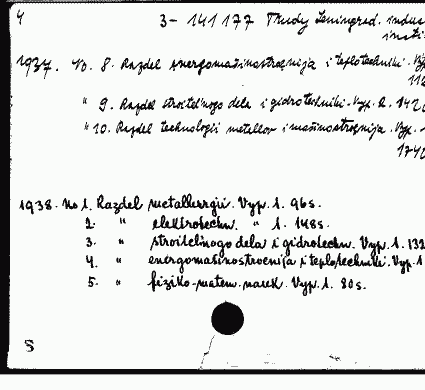 4 3- 141 177 Trudy Leningrad. indus
instit
1937. No. 8. Razdel energomašinostroenija i teplotechniki. Vyp
112
" 9. Razdel stroitel'nogo dela i gidrotechniki. Vyp. 2. 142
" 10. Razdel technologii metallov i mašinostroenija. Vyp.
174
1938. No 1. Razdel metallurgii. Vyp. 1. 96s.
2. " elektrotechn. " 1. 148s.
3. " stroitel'nogo dela i gidrotechn. Vyp. 1. 132
4. " energomašinostroenija i teplotechniki. Vyp. 1
5. " fiziko-matem. nauk. Vyp. 1. 80s.
S